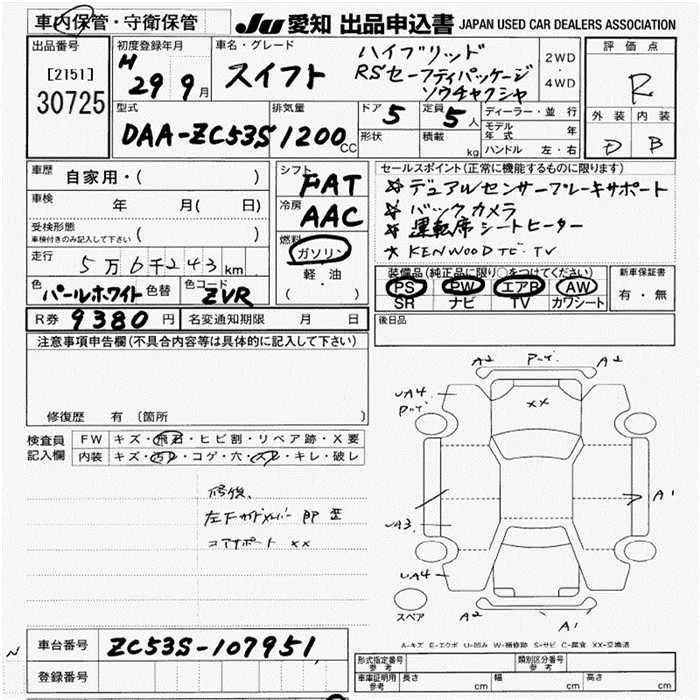 車内保管・守衛保管
JU 愛知 出品申込書 JAPAN USED CAR DEALERS ASSOCIATION
出品番号
[2151]
30725
初度登録年月
H 29 9月
車名・グレード
スイフト
ハイブリッド
RSセーフティパッケージ
ソウチャクシャ
2WD
・
4WD
評価点
R
外装 内装
D B
型式
DAA-ZC53S
排気量
1200cc
ドア 5
形状
定員 5人
積載 kg
ディーラー・並行
モデル年式 年
ハンドル 左・右
車歴
自家用・( )
車検 年 月( 日)
受検形態
車検付きのみ記入して下さい ( )
走行 5万6千243km
色 パールホワイト 色替 色コード ZVR
シフト FAT
冷房 AAC
燃料
ガソリン
軽・油
( )
R券 9380円 名変通知期限 月 日
セールスポイント(正常に機能するものに限ります)
☆デュアルセンサーブレーキサポート
☆バックカメラ
☆運転席シートヒーター
☆KENWOODナビ・TV
装備品(純正品に限り○をつけてください)
PS PW エアB AW
SR ナビ TV カワシート
新車保証書
有・無
後日品
注意事項申告欄(不具合内容等は具体的に記入して下さい)
修復歴 有〔箇所 〕
検査員記入欄
FW キズ・飛石・ヒビ割・リペア跡・X要
内装 キズ・汚レ・コゲ・穴・スレ・キレ・破レ
修復、
コアサポート XX
A2 A2
UA4
XX
A1
UA3
UA4
A2 A1
スペア
A-キズ E-エクボ U-凹み W-補修跡 S-サビ C-腐食 XX-交換済
車台番号 ZC53S-107951
登録番号
形式指定番号 参考
類別区分番号 参考
車庫証明用 参考 長さ cm 幅 cm 高さ cm